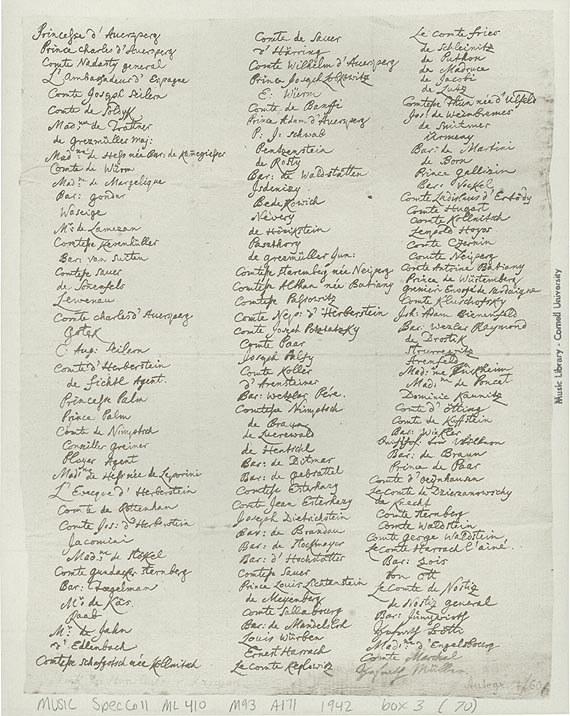 Princesse d'Auersperg
Prince Charle d'Auersperg
Comte Nadasty general
L'Ambassadeur d'Espagne
Comte Joseph Seilern
Comte de
Mad:me de Trattner
de Grezmüller maj:
Mad:me de Hess née Bar: de
Comte de Würm
Mad:me de Margelique
Bar: Gondar
Wasseige
Mr: de Lamezan
Comtesse Kevenhüller
Bar: van Suiten
Comtesse Sauer
de Sonnenfels
Lewenau
Comte charles d'Auersperg
C: Aug: Seilern
Comte d'Herberstein
de Fichtl Agent
Princesse Palm
Prince Palm
Comte de Nimptsch
Conseiller Greiner
Ployer Agent
Mad:me de Hess née de Leporini
L'Eveque d'Herberstein
Comte de Rottenhan
Comte Jos: d'Herberstein
Jacomini
Mad:me de Stökel
Comte Gundacker Sternberg
Bar:
Mr: de Käs
Raab
Mr: de Jahn
d'Edlenbach
Comtesse Schafgotsch née Kollnitsch
Comte de Sauer
d'Häring
Comte Wilhelm d'Auersperg
Prince Joseph Lobkowitz
E: Würm
Comte de Banffi
Prince Adam d'Auersperg
P: J: Schwab
Pentzenstein
de Rosty
Bar: de Waldstätten
Isdenczy
Bedekovich
Nevery
de Hönikstein
Pasthory
de Grezmüller Jun:
Comtesse Staremberg née Neiperg
Comtesse Althan née Batiany
Comtesse Passowitz
Comte Nep: d'Herberstein
Comte Joseph Potstatzky
Comte Paar
Joseph Palfy
Comte Koller
d'Arensteiner
Bar: Wetzlar Père
Comtesse Nimptsch
de Braun
de Luerewald
de Hentschl
Bar: de Ditmar
Bar: de Gebsattel
Comtesse Esterhazy
Comte Jean Esterhazy
Joseph Dietrichstein
Bar: de Brandau
Bar: de Hochstätter
Comtesse Sauer
Prince Louis Lichtenstein
de Meyenberg
Comte Sallabourg
Bar: de Mandelsloh
Louis Würben
Ernest Harrach
Le comte Keglewitz
Le comte Fries
de Schleinitz
de Puthon
de Madruce
de Jacobi
de Lutz
Comtesse Thun née d'Uhlfeld
Jos: de Weinbremer
de Suitmer
Ürmeny
Bar: de Martini
de Born
Prince Gallizin
Bar: Vockel
Comte Ladislaus d'Erdödy
Comte Hugart
Comte Kollnitsch
Leopold Hoyos
Comte Czernin
Comte Neiperg
Comte Antoine Batiany
Prince de Würtemberg
Grenieri Envoyé de Sardaigne
Comte Kluschofsky
Joh: Adam Bienenfeld
Bar: Wezlar Raymond
de Drostik
Arenfeld
Mad:me Türkheim
Mad:me de Poncet
Dominic Kaunitz
Comte d'Otting
Comte de Kuffstein
Bar: Winkler
Bar: de Braun
Prince de Paar
Comte d'Oeynhausen
Le comte de Dzierzanowschy
de Knecht
Comte Sternberg
Comte Waldstein
Comte George Waldstein
Le comte Harrach l'ainé.
Bar: Gois
von Ott
Le comte de Nostiz
de Nostiz general
Bar: Jungwirth
Mad:me d'Engelsbourg
Comte Marchal
Autogr. 7/60
MUSIC Spec Coll ML 410 M93 A171 1942 box 3 (70)
Music Library - Cornell University